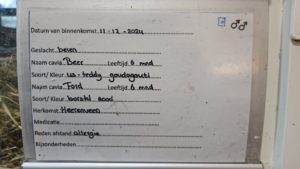 Datum van binnenkomst: 11-12-2024
Geslacht: beren
Naam cavia: Beer Leeftijd 6 mnd
Soort/ Kleur: us-teddy goudagouti
Naam cavia: Ford Leeftijd 6 mnd
Soort/ Kleur: borstel rood
Herkomst: Heerenveen
Medicatie
Reden afstand: allergie
Bijzonderheden